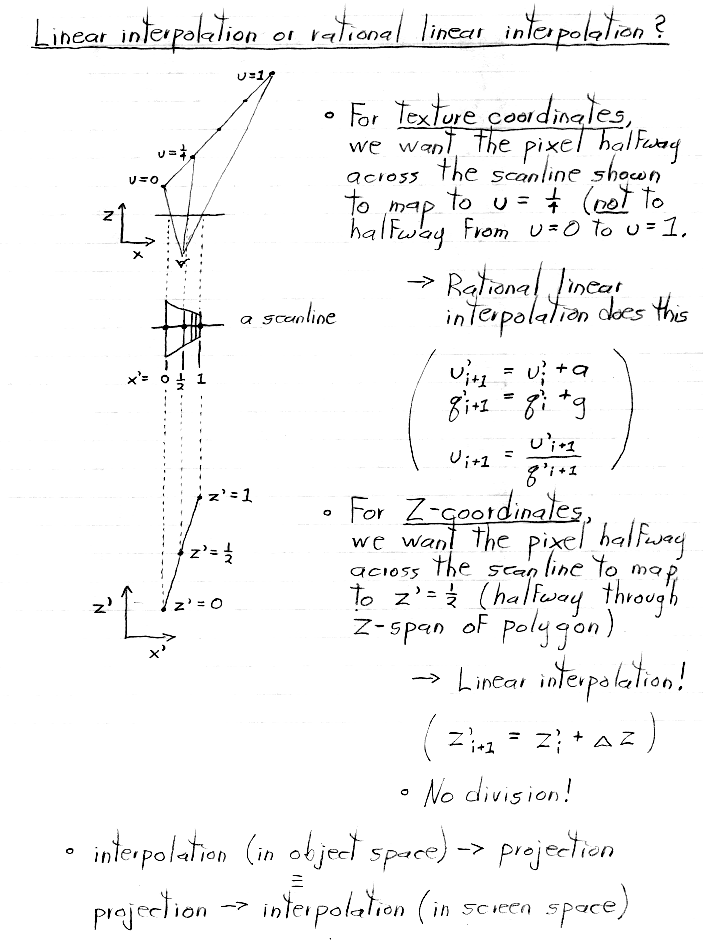 Linear interpolation or rational linear interpolation?
u=1
u=1/4
u=0
z
x
• For texture coordinates,
we want the pixel halfway
across the scanline shown
to map to u = 1/4 (not to
halfway from u=0 to u=1.
→ Rational linear
interpolation does this
a scanline
x'= 0 1/2 1
u'i+1 = u'i + a
q'i+1 = q'i + g
ui+1 = u'i+1 / q'i+1
z'=1
z'=1/2
z'=0
z'
x'
• For Z-coordinates,
we want the pixel halfway
across the scanline to map
to z'=1/2 (halfway through
Z-span of polygon)
→ Linear interpolation!
( z'i+1 = z'i + △ z )
• No division!
• interpolation (in object space) → projection
≡
projection → interpolation (in screen space)